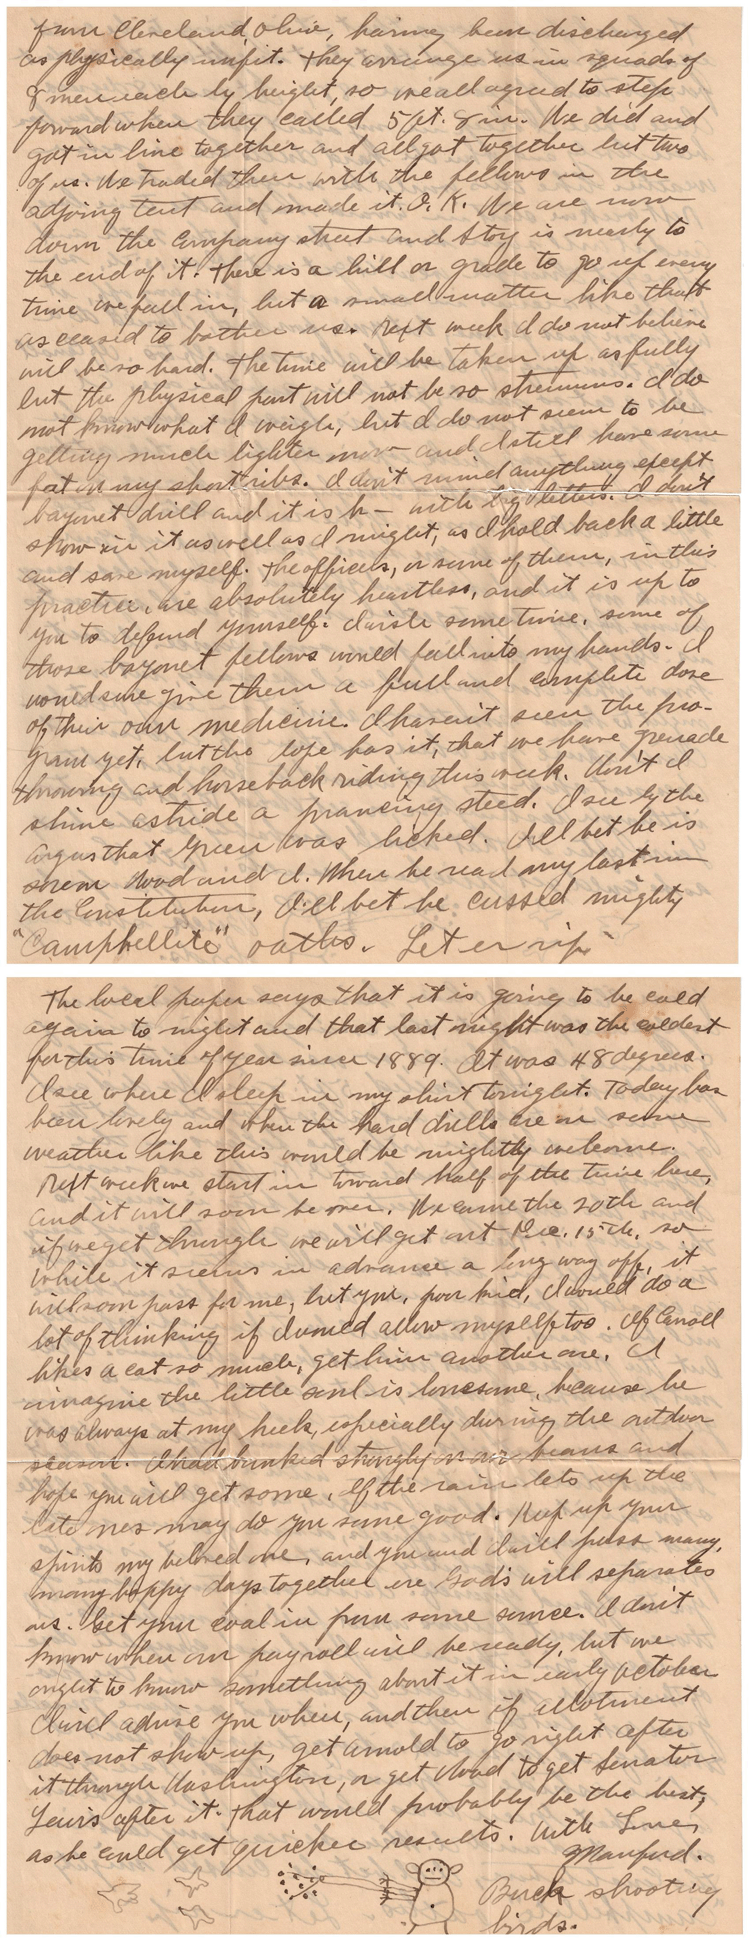 from Cleveland, Ohio, having been discharged
as physically unfit. They arrange us in squads of
8 men each by height, so we all agreed to step
forward when they called 5 ft. 8 in. We did and
got in line together and all got together but two
of us. We traded them with the fellows in the
adjoing tent and made it O.K. We are now
down the Company street and Stoy is nearly to
the end of it. There is a hill or grade to go up every
time we fall in, but a small matter like that
as ceased to bother us. Next week I do not believe
will be so hard. The time will be taken up as fully
but the physical part will not be so strenuous. I do
not know what I weigh, but I do not seem to be
getting much lighter now and I still have some
fat on my short ribs. I don't mind anything except
bayonet drill and it is h— with big letters. I don't
show in it as well as I might, as I hold back a little
and save myself. The officers, or some of them, in this
practice, are absolutely heartless, and it is up to
you to defend yourself. I wish some time, some of
those bayonet fellows would fall into my hands. I
would sure give them a full and complete dose
of their own medicine. I haven't seen the pro-
gram yet, but the dope has it, that we have grenade
throwing and horseback riding this week. Won't I
shine astride a prancing steed. I see by the
Argus that Green was licked. I'll bet he is
sore on Wood and I. When he read my last in
the Constitution, I'll bet he cussed mighty
"Campbellite" oaths. Let er rip
The local paper says that it is going to be cold
again to night and that last night was the coldest
for this time of year since 1889. It was 48 degrees.
I see where I sleep in my shirt tonight. Today has
been lovely and when the hard drills are on some
weather like this would be mightly welcome.
Next week we start in toward half of the time here,
and it will soon be over. We came the 20th and
if we get through we will get out Dec. 15th, so
while it seems in advance a long way off, it
will soon pass for me, but you, poor kid, I would do a
lot of thinking if I would allow myself too. If Carroll
likes a cat so much, get him another one. I
imagine the little soul is lonesome, because he
was always at my heels, especially during the outdoor
season. I had bunked strongly on our beans and
hope you will get some. If the rain lets up the
late ones may do you some good. Keep up your
spirits my beloved one, and you and I will pass many,
many happy days together ere God's will separates
us. Get your coal in from some source. I don't
know when our payroll will be ready, but we
ought to know something about it in early October
I will advise you when, and then if allotment
does not show up, get Arnold to go right after
it through Washington, or get Wood to get Senator
Lewis after it. That would probably be the best,
as he could get quicker results. With Love,
Manford.
Buck shooting
birds.